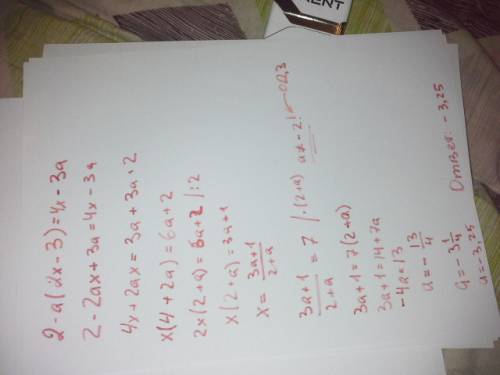 MENT
2-a(2x-3)=4x-3a
2-2ax+3a=4x-3a
4x+2ax=3a+3a+2
x(4+2a)=6a+2
2x(2+a)=6a+2 |:2
x(2+a)=3a+1
x=\frac{3a+1}{2+a}
\frac{3a+1}{2+a}=7 |·(2+a) a≠-2! ОДЗ
3a+1=7(2+a)
3a+1=14+7a
-4a=13
a=-\frac{13}{4}
a=-3\frac{1}{4}
a=-3,25
Ответ: -3,25